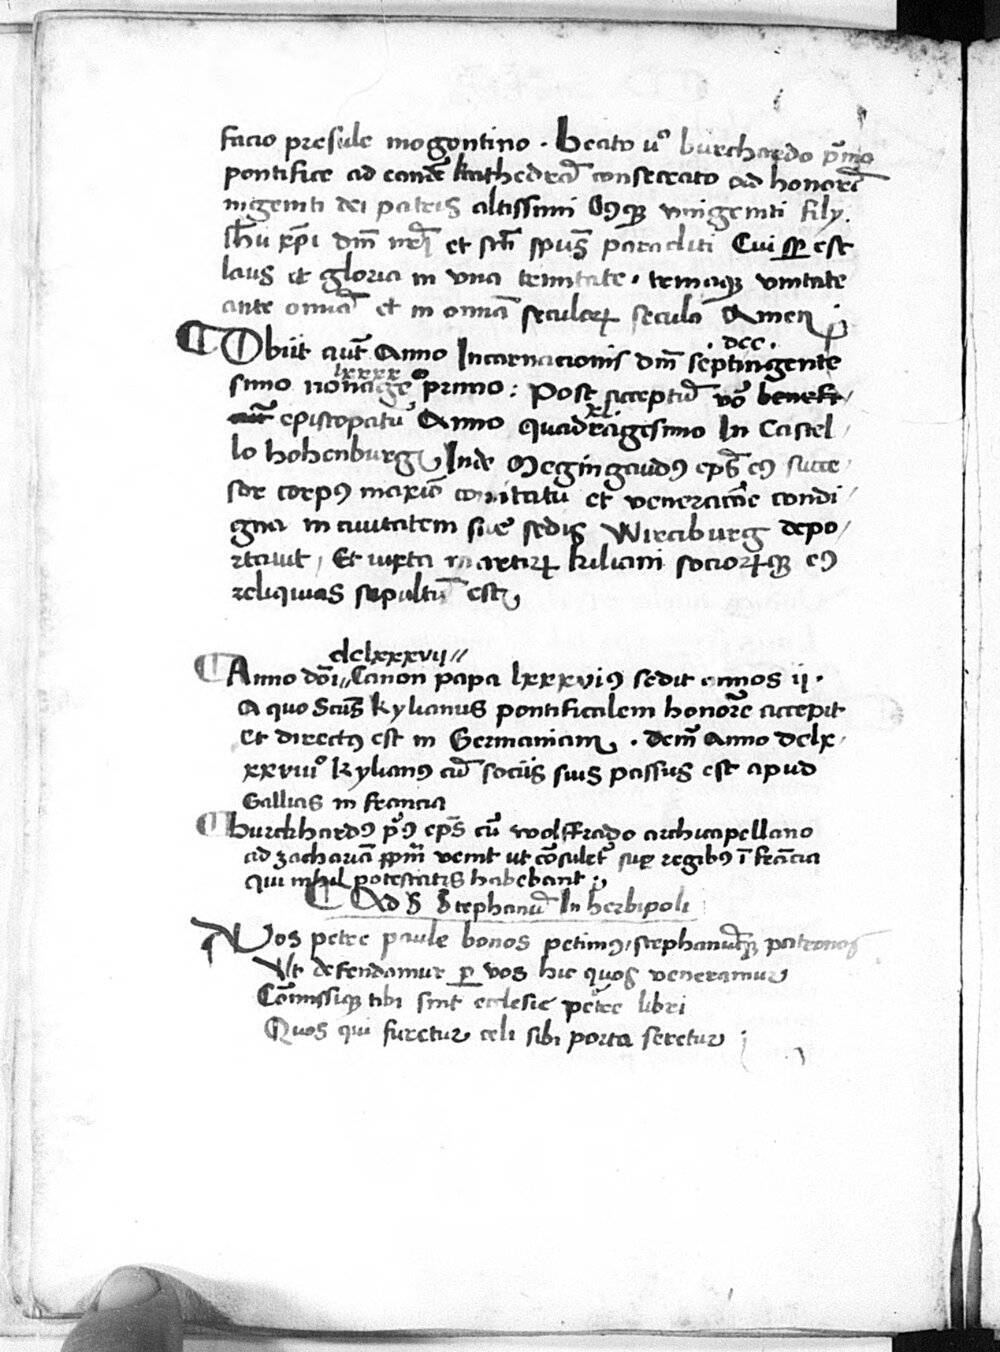 facio presule mogontino . Beato uº burchardo pͥmo
pontifice ad eandē kathedrā consecrato ad honorē
ingeniti dei patris altissimi Eiꝰqꝫ vnigeniti filÿ.
Ihū xp̄i dn̄i nr̄i et sc̄ti spūs paracliti Cui sp̄ est
laus et gloria in vna trinitate . trinaqꝫ vnitate
ante omīa et in omīa seculoꝝ secula Amen
¶ Obiit aut̄ Anno Incarnacionis dn̄i septingente
.dcc.
simo nonage primo : Post acceptū vō
lxxxx
aut̄ episcopatū Anno quadragesimo In Castel/
xl
lo hohenburg Inde Megingaudꝰ ep̄s eiꝰ succe/
sor corpꝰ maxīo comitatu et veneracōne condi/
gna in ciuitatem siue sedis Wirciburg depo/
rtauit / Et iuxta martirꝝ kiliani socioꝝqꝫ eiꝰ
reliquias sepultū est
dclxxxvij//
¶ Anno dōi// Canon papa lxxxviꝰ sedit annos ij .
A quo Sc̄us Kylianus pontificalem honorē accepit
et directꝰ est in Germaniam . dem̄ Anno dclx/
xxviiiº Kylianꝰ cū sociis suis passus est apud
Gallias in francia
¶ burckhardꝰ pͥꝰ ep̄s cū wolffrado archicapellano
ad zachariā ppm̄ venit ut cōsulet sup regibꝰ ī frācia
qui nihil potestatis habebant :
¶ Ad S Stephanū In herbipoli
Vos petre paule bonos petimꝰ/ stephanūqꝫ patronos
Ut defendamur ꝑ vos hic quos veneramur
Cōmissiqꝫ tibi sint ecclesie petre libri
Quos qui furetur celi sibi porta seretur